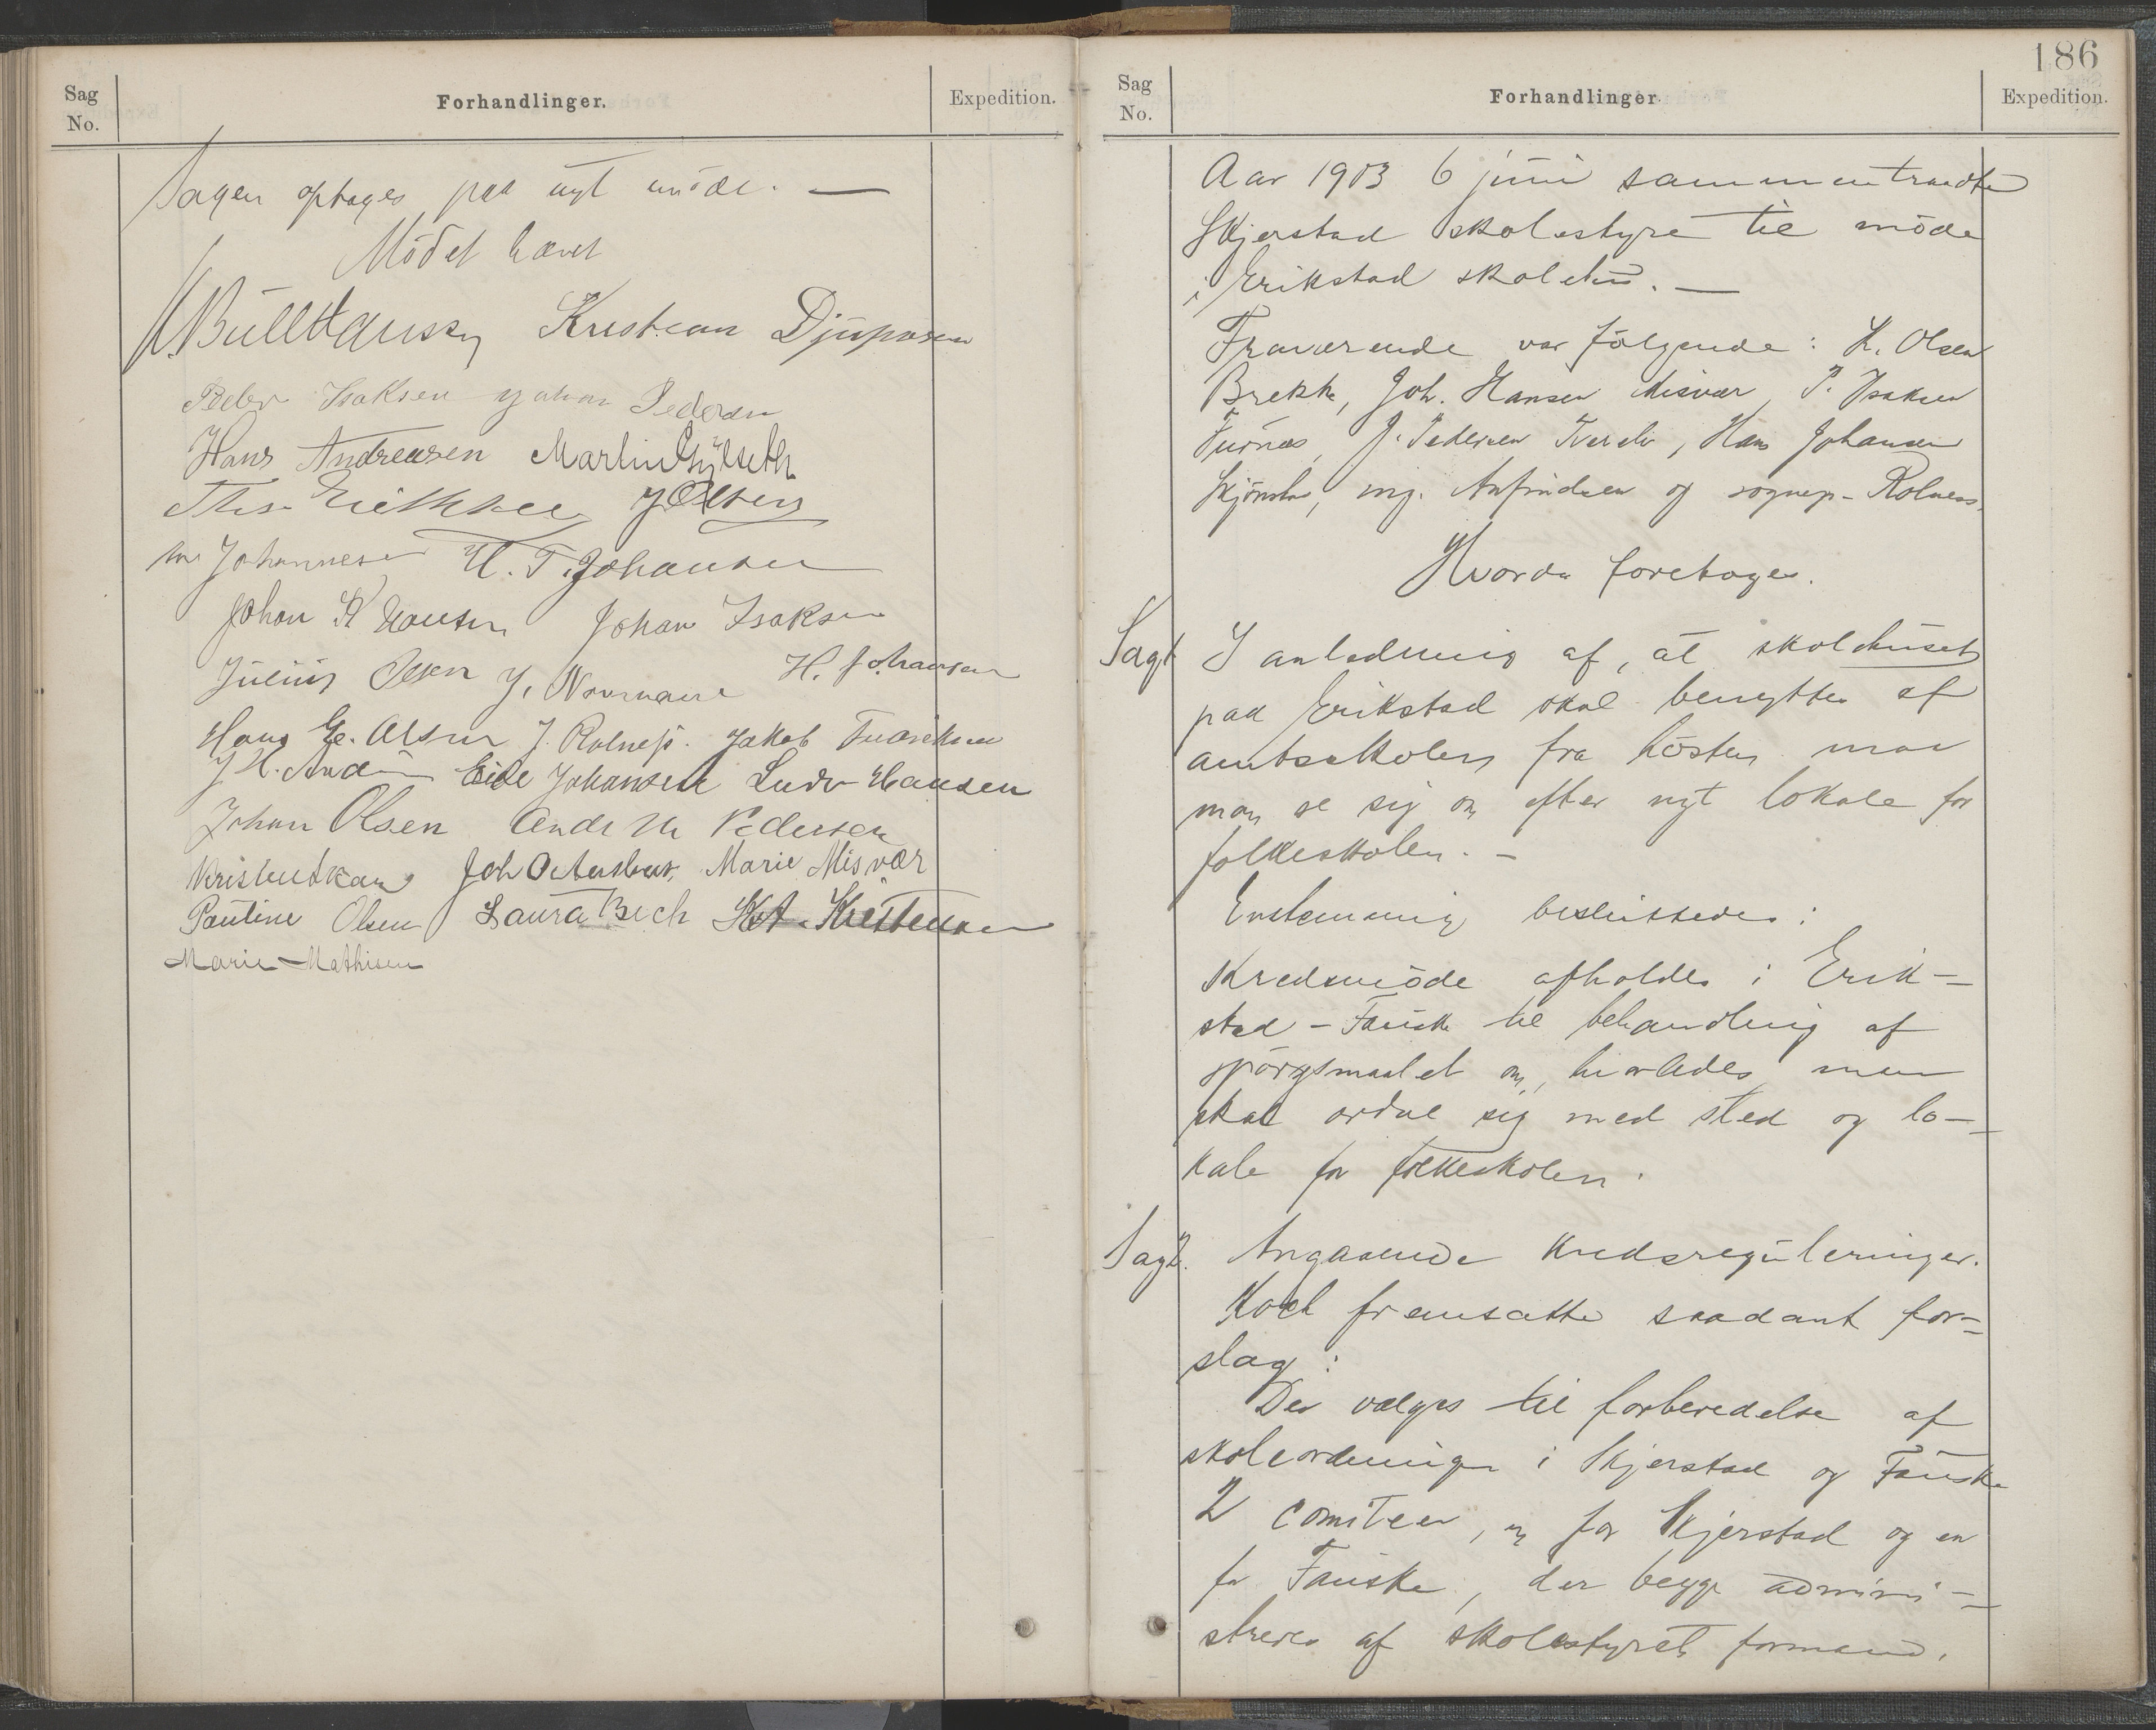 Sag
No.
Forhandlinger.
Expedition.
Sagen optages paa nyt möde. —
Mödet hævet
Bull Hansen Kristian Djuposen
Peder Isaksen Johan Pedersen
Hans Andreasen Martin Gylseth
J Olsen
Johannesen H. T. Johansen
Johan Hansen Johan Isaksen
Julius Olsen J. Normann H. Johansen
Hans E. Olsen J. Rolness. Jakob Fredriksen
Eide Johansen Ludv Hansen
Johan Olsen Pedersen
Joh Marie Misvær
Pauline Olsen Laura Bech Kristensen
Marie Mathisen
186
Sag
No.
Forhandlinger.
Expedition.
Aar 1903 6 juni sammentraadte
Skjerstad skolestyre til möde
i Erikstad skolehus. —
Fraværende var følgende: K. Olsen
Brekke, Joh. Hansen Misvær P. Isaksen
Furnes, J. Pedersen Tverelv, Hans Johansen
Skjönstu, ing. Anfindsen og sognep. Rolness.
Hvorda foretoges.
Sag 1 I anledning af, at skolehuset
paa Erikstad skal benyttes af
amtsskolen fra hösten maa
man se sig om efter nyt lokale for
folkeskolen. —
Enstemmig besluttedes:
Kredsmöde afholdes i Erik-
stad - Fauske til behandling af
spörgsmaalet om, hvorledes man
skal ordne sig med sted og lo-
kale for folkeskolen.
Sag 2. Angaaende kredsreguleringer.
Koch fremsatte saadant for-
slag:
Der vælges til forberedelse af
skoleordningen i Skjerstad og Fauske
2 comiteer, en for Skjerstad og en
for Fauske, der begge admini-
streres af skolestyrets formand.